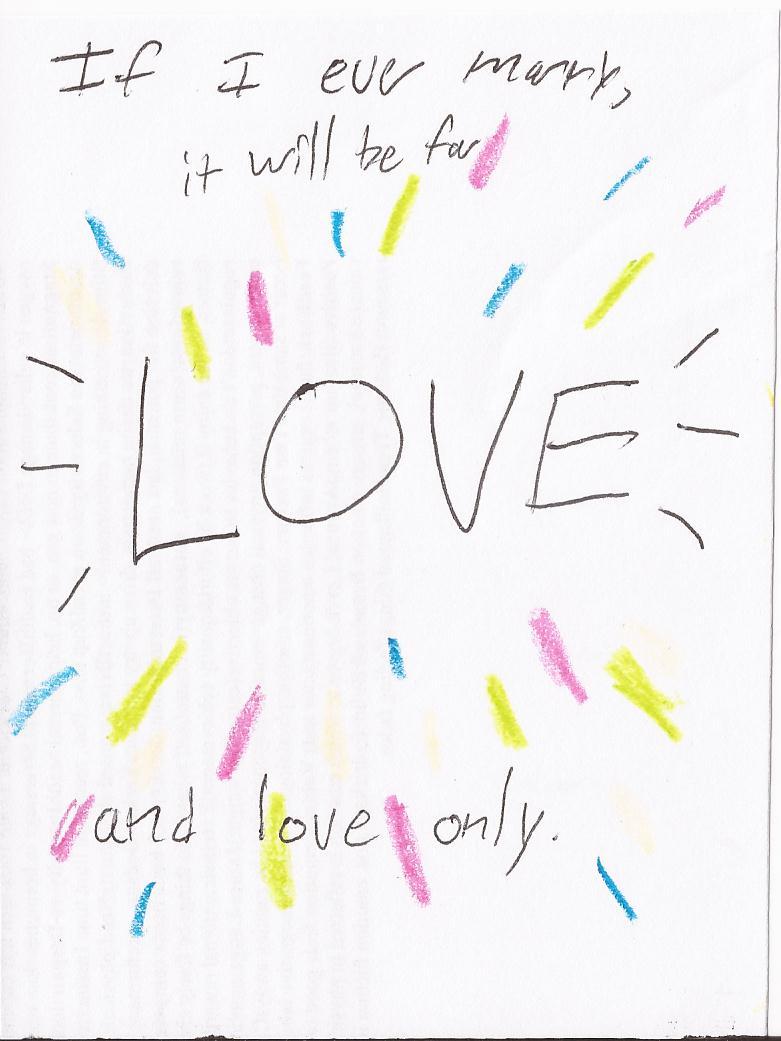 If I ever marry,
it will be for
LOVE
and love only.